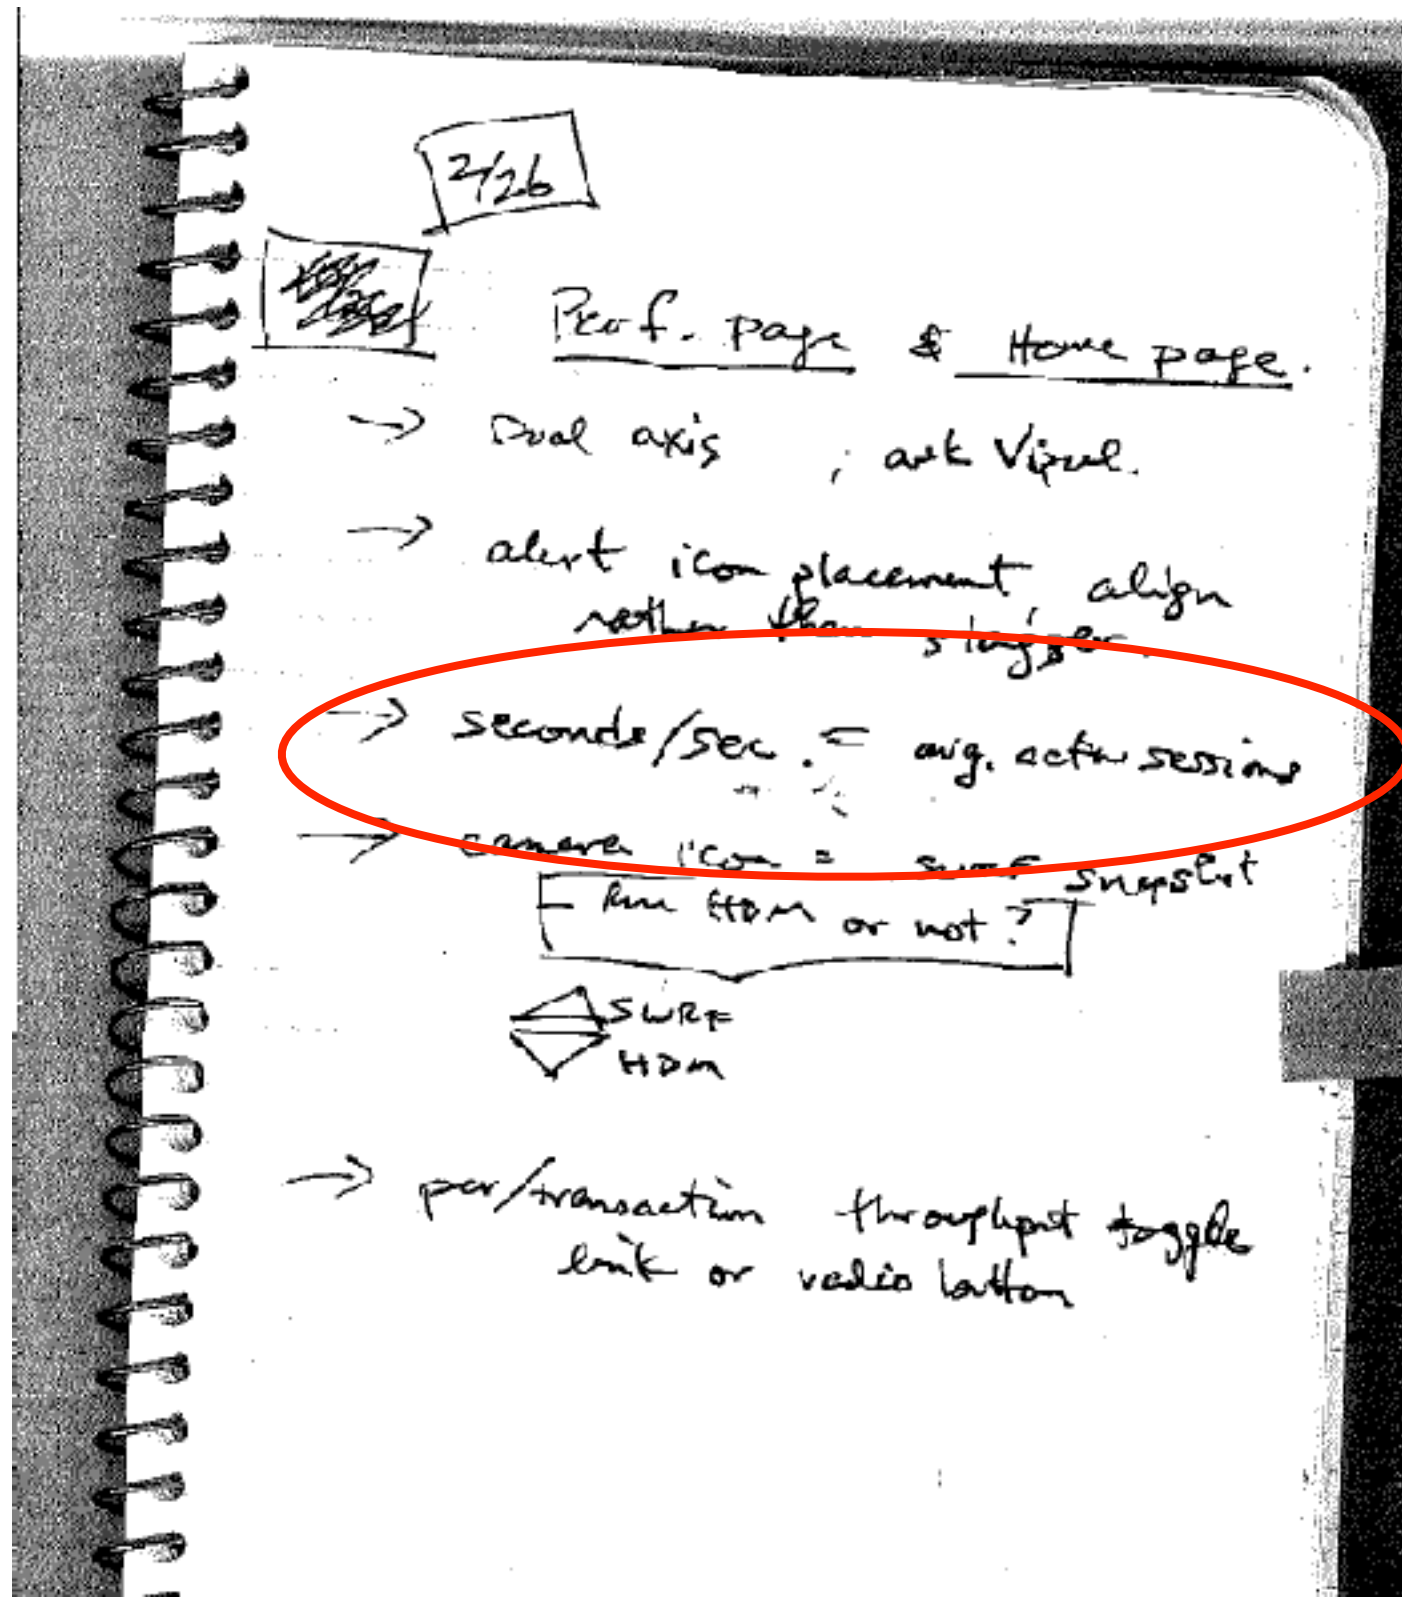 2/26
Perf. page & Home page.
→ Dual axis ; ask Vipul.
→ alert icon placement, align
rather than stagger.
→ seconds/sec. = avg. active sessions
→ camera icon = SWRF snapshot
- Run HDM or not?
SWRF
HDM
→ per/transaction throughput toggle
link or radio button